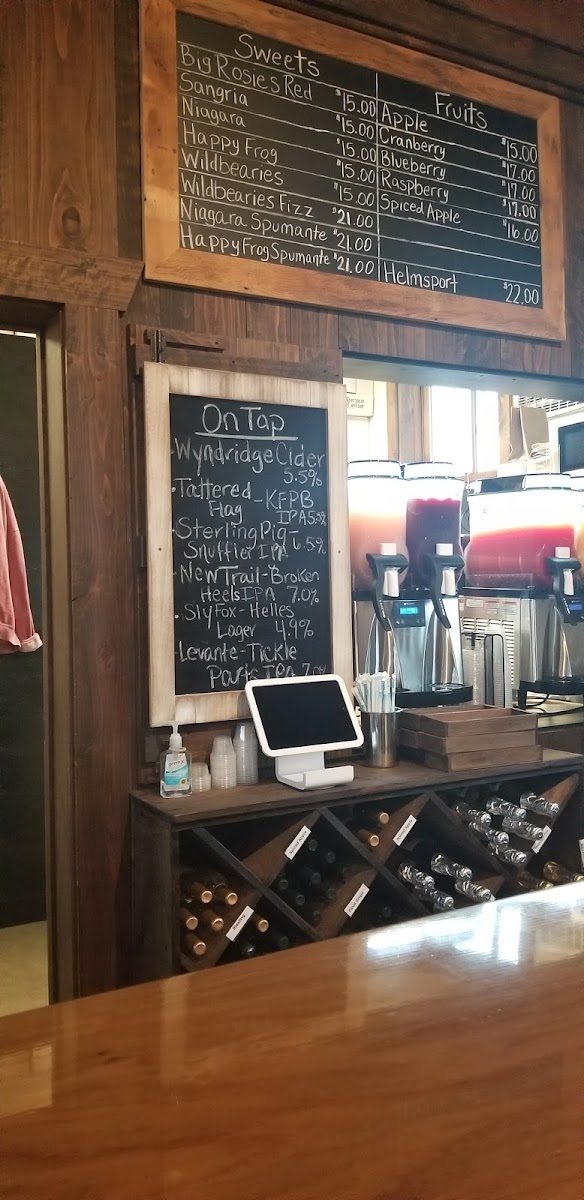 Sweets
Big Rosies Red $15.00
Sangria $15.00
Niagara $15.00
Happy Frog $15.00
Wildbearies $15.00
Wildbearies Fizz $21.00
Niagara Spumante $21.00
Happy Frog Spumante $21.00
Fruits
Apple $15.00
Cranberry $17.00
Blueberry $17.00
Raspberry $17.00
Spiced Apple $16.00
Helmsport $22.00
On Tap
- Wyndridge Cider
5.5%
- Tattered
Flag - KFPB
IPA 5.5%
- Sterling Pig -
Snuffler IPA 6.5%
- New Trail - Broken
Heels IPA 7.0%
- Sly Fox - Helles
Lager 4.9%
- Levante - Tickle
Parts IPA